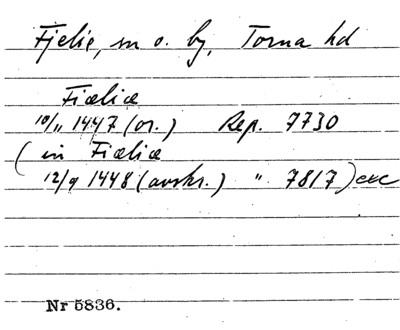 Fjelie, sn o. by, Torna hd
Fiæliæ
10/11 1447 (or.) Rep. 7730
(in Fiæliæ
12/9 1448 (avskr.) " 7817) exc
Nr 5836.